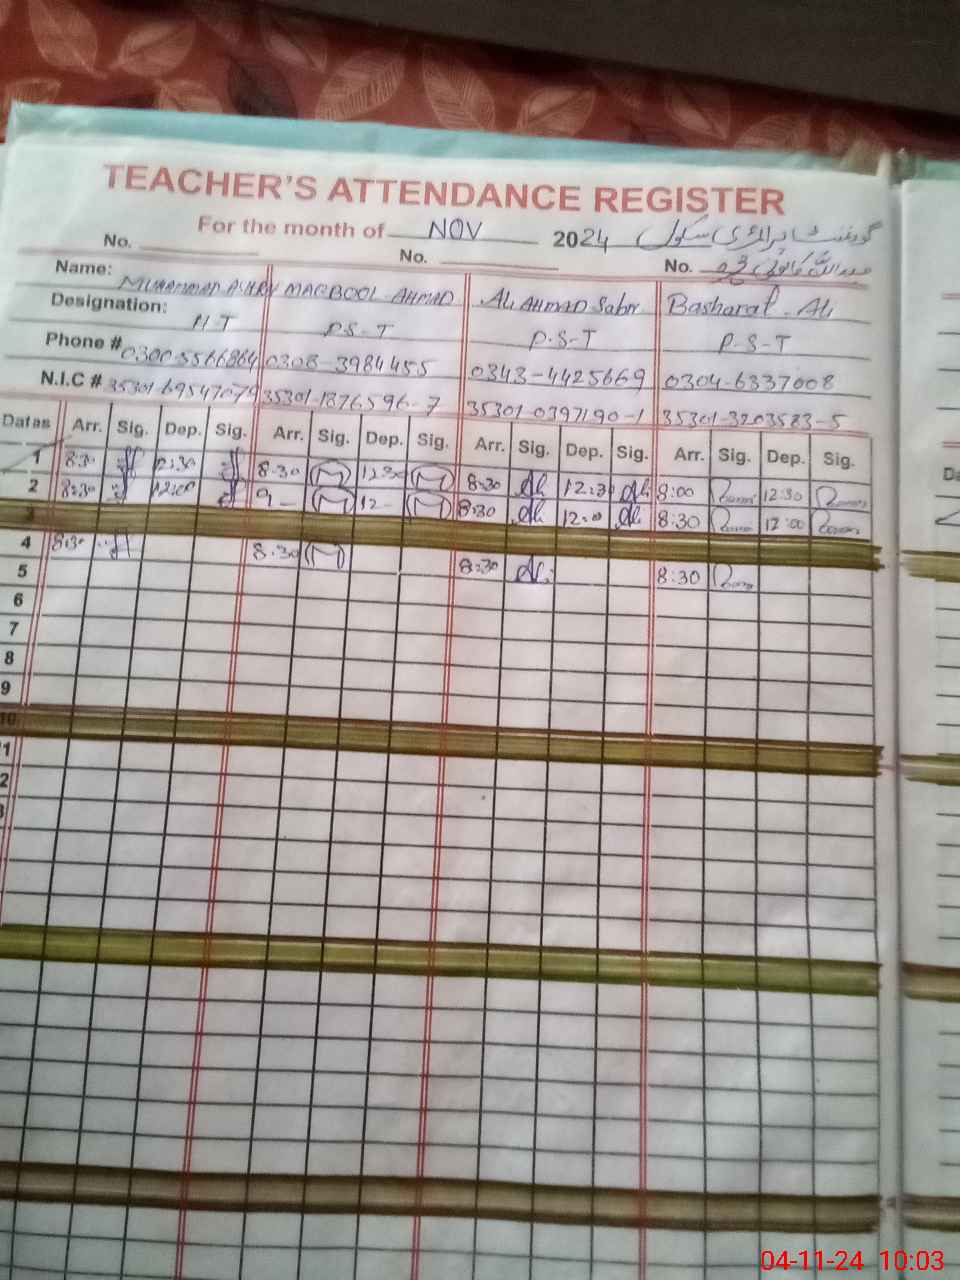 TEACHER'S ATTENDANCE REGISTER
For the month of NOV 2024 گورنمنٹ پرائمری سکول
No. No. No.
Name: MUHAMMAD ASHRAF MAQBOOL AHMAD Ali AHMAD Sabir Basharat Ali
Designation: H-T P.S-T P-S-T P-S-T
Phone # 0300-5566864 0308-3984455 0343-4425669 0304-6337008
N.I.C # 35301-69547079 35301-1876596-7 35301-0397190-1 35301-3203583-5
Datas Arr. Sig. Dep. Sig. Arr. Sig. Dep. Sig. Arr. Sig. Dep. Sig. Arr. Sig. Dep. Sig.
1 8:30 12:30 8.30 12.30 8:30 12:30 8:00 12:30
2 8:30 12:00 9- 12- 8:30 12:00 8:30 12:00
3
4 8:30 8.30 8:30 8:30
5
6
7
8
9
10
1
2
3
04-11-24 10:03